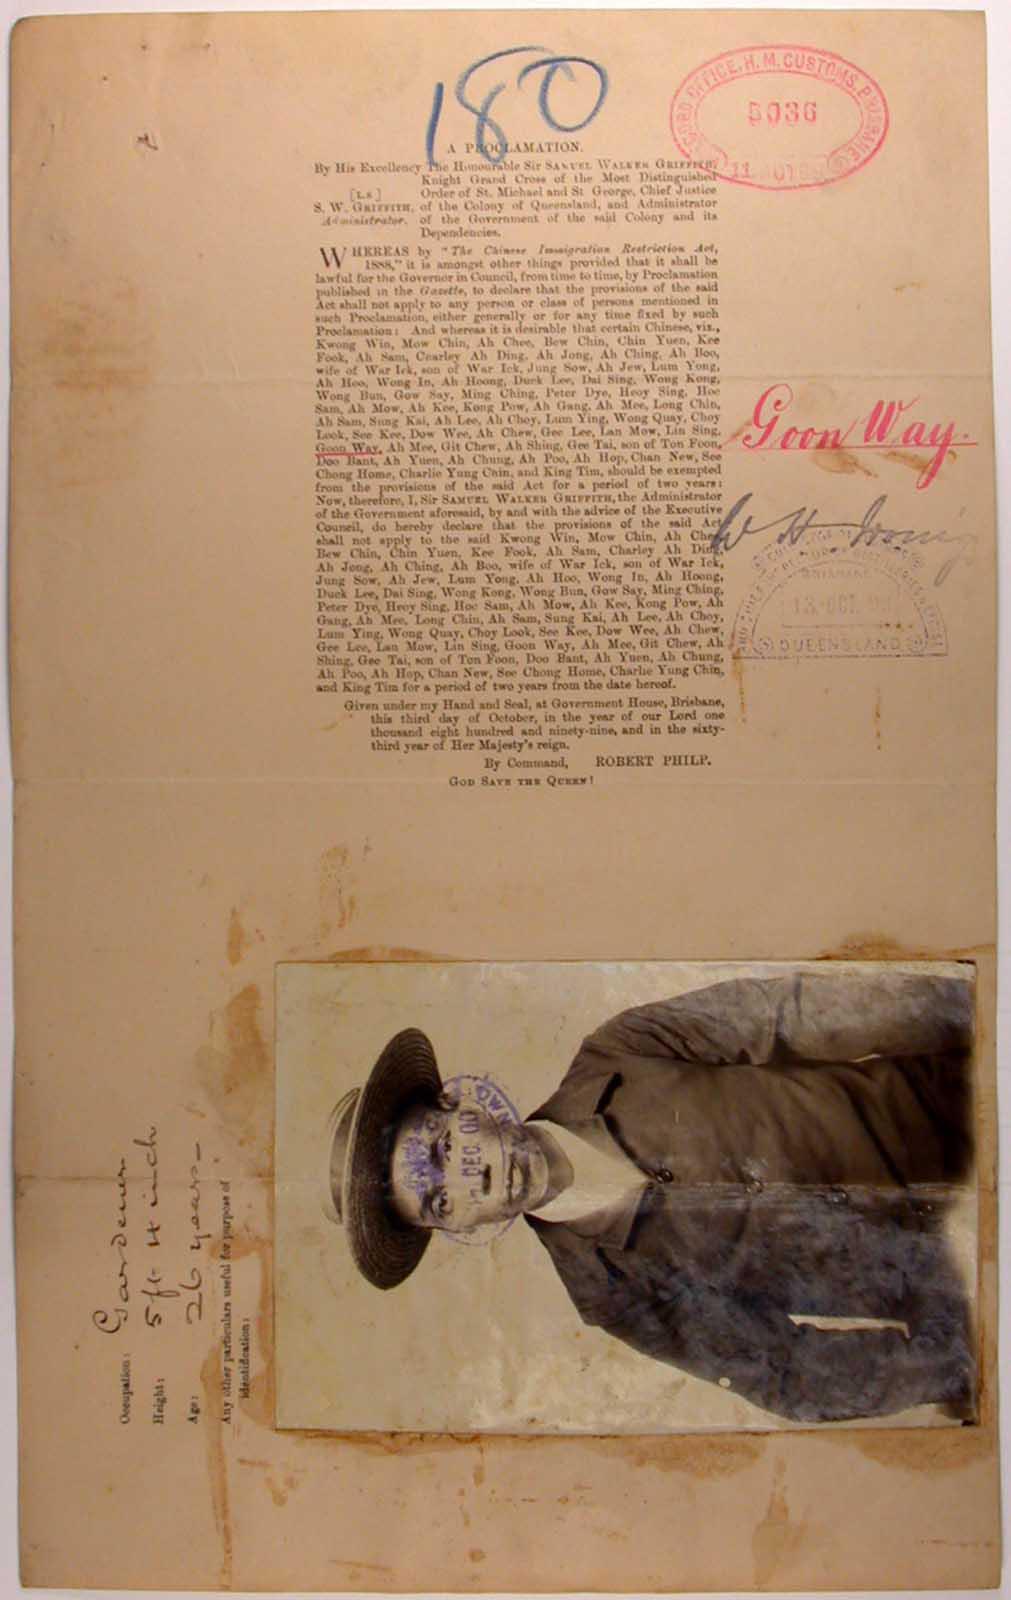 180
RECORD OFFICE, H. M. CUSTOMS, BRISBANE
5036
A PROCLAMATION.
By His Excellency The Honourable Sir SAMUEL WALKER GRIFFITH,
Knight Grand Cross of the Most Distinguished
[L.S] Order of St. Michael and St George, Chief Justice
S. W. GRIFFITH, of the Colony of Queensland, and Administrator
Administrator. of the Government of the said Colony and its
Dependencies.
WHEREAS by "The Chinese Immigration Restriction Act,
1888," it is amongst other things provided that it shall be
lawful for the Governor in Council, from time to time, by Proclamation
published in the Gazette, to declare that the provisions of the said
Act shall not apply to any person or class of persons mentioned in
such Proclamation, either generally or for any time fixed by such
Proclamation: And whereas it is desirable that certain Chinese, viz.,
Kwong Win, Mow Chin, Ah Chee, Bew Chin, Chin Yuen, Kee
Fook, Ah Sam, Cearley Ah Ding, Ah Jong, Ah Ching, Ah Boo,
wife of War Ick, son of War Ick, Jung Sow, Ah Jew, Lum Yong,
Ah Hoo, Wong In, Ah Hoong, Duck Lee, Dai Sing, Wong Kong,
Wong Bun, Gow Say, Ming Ching, Peter Dye, Heoy Sing, Hoc
Sam, Ah Mow, Ah Kee, Kong Pow, Ah Gang, Ah Mee, Long Chin,
Ah Sam, Sung Kai, Ah Lee, Ah Choy, Lum Ying, Wong Quay, Choy
Look, See Kee, Dow Wee, Ah Chew, Gee Lee, Lan Mow, Lin Sing,
Goon Way, Ah Mee, Git Chew, Ah Shing, Gee Tai, son of Ton Foon,
Doo Bant, Ah Yuen, Ah Chung, Ah Poo, Ah Hop, Chan New, See
Chong Home, Charlie Yung Chin, and King Tim, should be exempted
from the provisions of the said Act for a period of two years:
Now, therefore, I, Sir SAMUEL WALKER GRIFFITH, the Administrator
of the Government aforesaid, by and with the advice of the Executive
Council, do hereby declare that the provisions of the said Act
shall not apply to the said Kwong Win, Mow Chin, Ah Chee,
Bew Chin, Chin Yuen, Kee Fook, Ah Sam, Charley Ah Ding,
Ah Jong, Ah Ching, Ah Boo, wife of War Ick, son of War Ick,
Jung Sow, Ah Jew, Lum Yong, Ah Hoo, Wong In, Ah Hoong,
Duck Lee, Dai Sing, Wong Kong, Wong Bun, Gow Say, Ming Ching,
Peter Dye, Heoy Sing, Hoc Sam, Ah Mow, Ah Kee, Kong Pow, Ah
Gang, Ah Mee, Long Chin, Ah Sam, Sung Kai, Ah Lee, Ah Choy,
Lum Ying, Wong Quay, Choy Look, See Kee, Dow Wee, Ah Chew,
Gee Lee, Lan Mow, Lin Sing, Goon Way, Ah Mee, Git Chew, Ah
Shing, Gee Tai, son of Ton Foon, Doo Bant, Ah Yuen, Ah Chung,
Ah Poo, Ah Hop, Chan New, See Chong Home, Charlie Yung Chin,
and King Tim for a period of two years from the date hereof.
Given under my Hand and Seal, at Government House, Brisbane,
this third day of October, in the year of our Lord one
thousand eight hundred and ninety-nine, and in the sixty-
third year of Her Majesty's reign.
By Command, ROBERT PHILP.
GOD SAVE THE QUEEN!
Goon Way.
W H Irving
BRISBANE
13 OCT
QUEENSLAND
DEC. 00
Occupation: Gardener
Height: 5 ft 4 inch
Age: 26 years
Any other particulars useful for purpose of
identification: